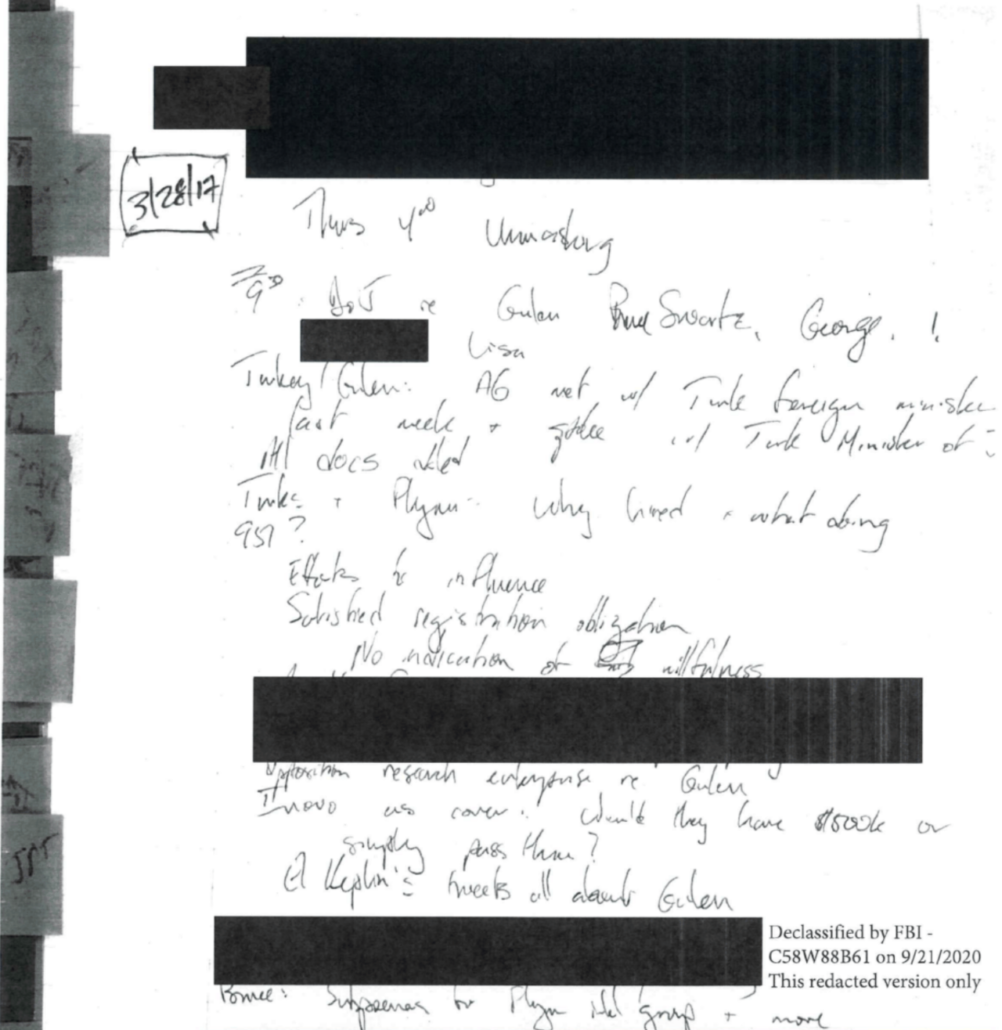 3/28/17
Thurs 4⁰⁰ Unmasking
9³⁰ DoJ re Gulen Bruce Swartz, George, !
Lisa
Turkey/Gulen: AG met w/ Turk foreign minister
last week + w/ Turk Minister of
All docs
Turks + Flynn: Why hired + what doing
951?
Efforts to influence
Satisfied registration obligation
No indication of willfulness
Opposition research enterprise re Gulen
Inovo as cover. Would they have $500k or
simply pass thru?
tweets all about Gulen
Declassified by FBI -
C58W88B61 on 9/21/2020
This redacted version only
Bruce: Subpoenas for Flynn Intel Group + more